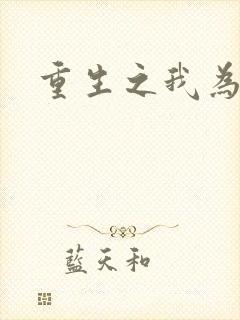 重生之我為
藍天和